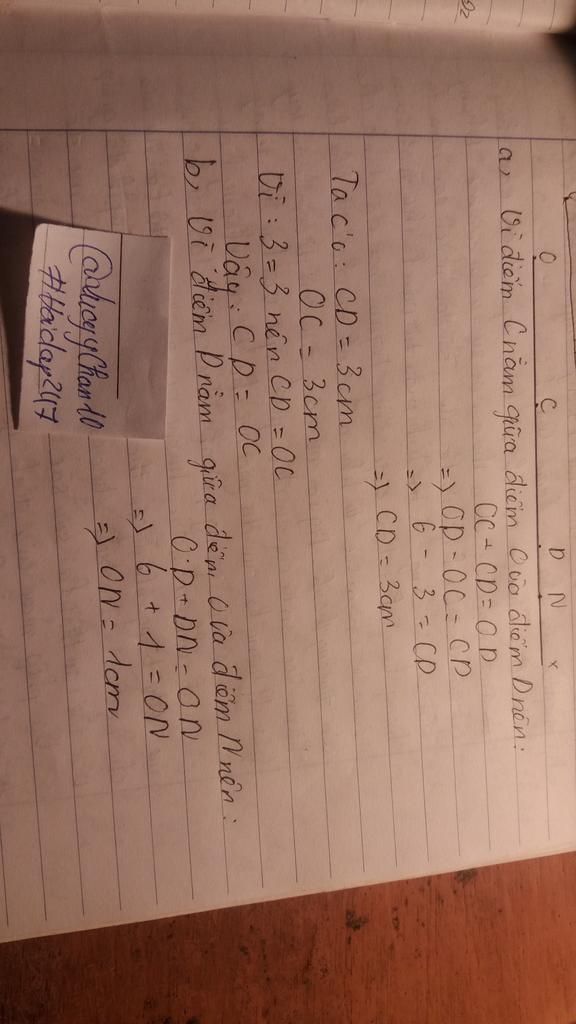 O C D N x
a, Vì điểm C nằm giữa điểm O và điểm D nên:
OC + CD = OD
=> OD - OC = CD
=> 6 - 3 = CD
=> CD = 3cm
Ta có: CD = 3cm
OC = 3cm
Vì: 3 = 3 nên CD = OC
Vậy: CD = OC
b, Vì điểm D nằm giữa điểm O và điểm N nên:
O.D + DN = ON
=> 6 + 1 = ON
=> ON = 1cm
#Hoidap247